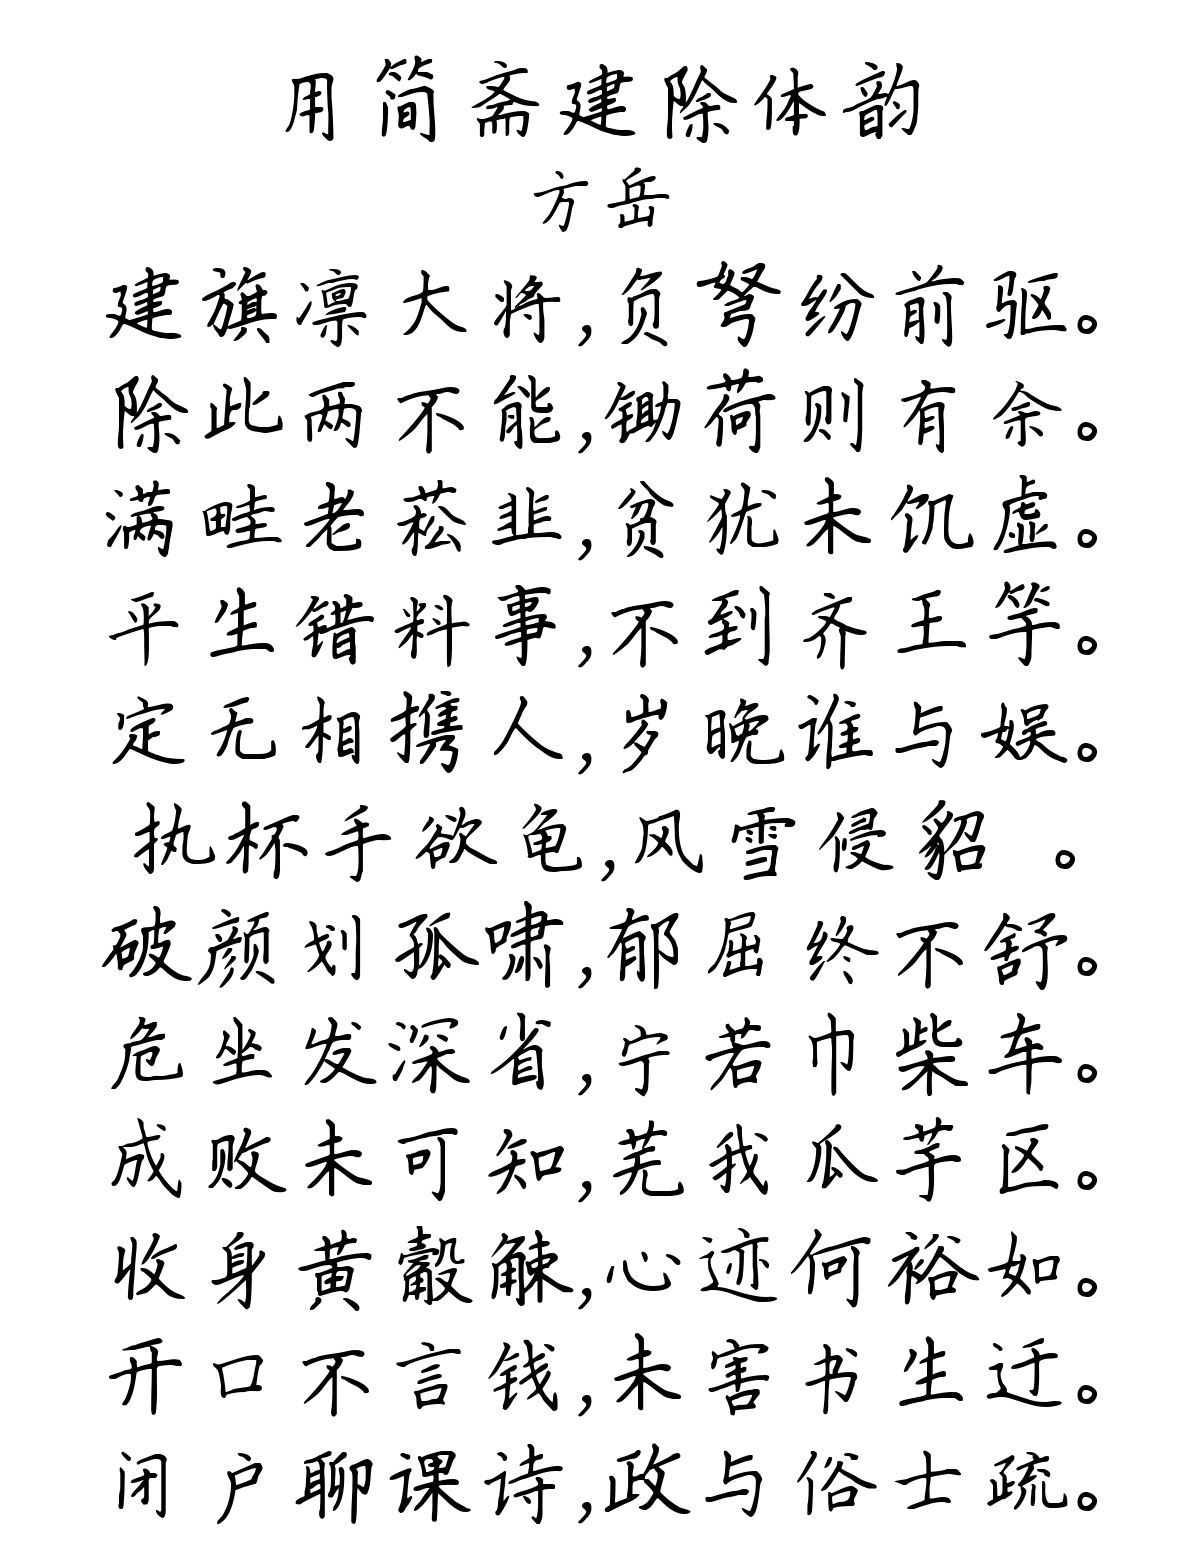 用简斋建除体韵
方岳
建旗凛大将,负弩纷前驱。
除此两不能,锄荷则有余。
满畦老菘韭,贫犹未饥虚。
平生错料事,不到齐王竽。
定无相携人,岁晚谁与娱。
执杯手欲龟,风雪侵貂 。
破颜划孤啸,郁屈终不舒。
危坐发深省,宁若巾柴车。
成败未可知,芜我瓜芋区。
收身黄觳觫,心迹何裕如。
开口不言钱,未害书生迂。
闭户聊课诗,政与俗士疏。